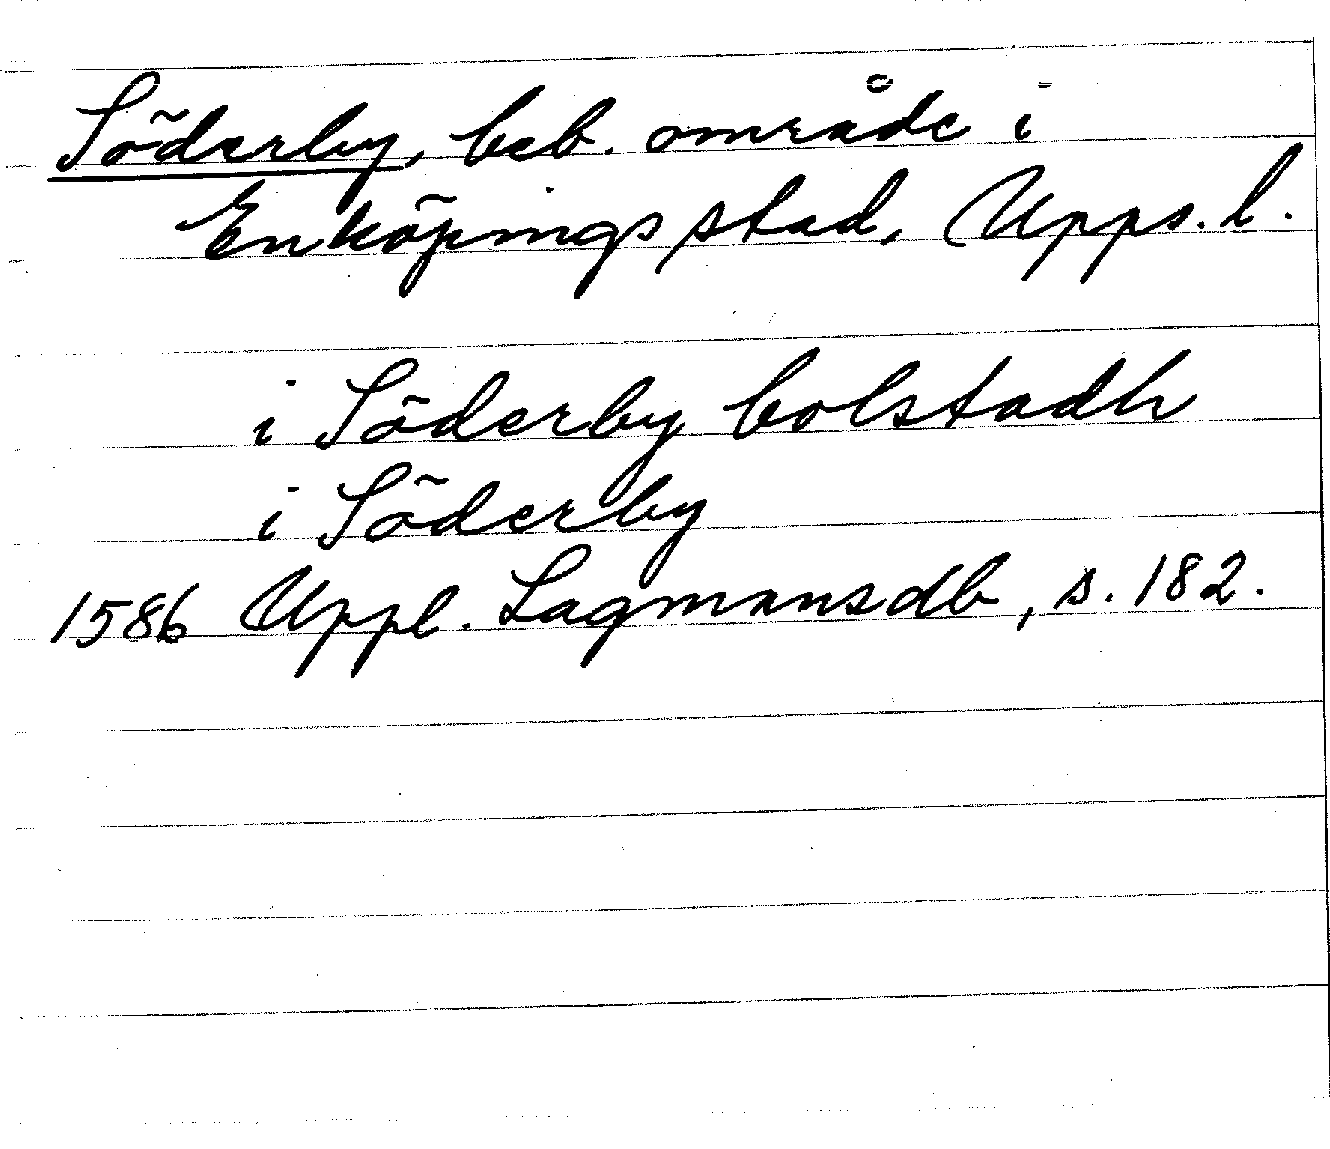 Söderby, beb. område i
Enköpings stad, Upps. l.
i Söderby bolstadh
i Söderby
1586 Uppl. Lagmansdb, s. 182.